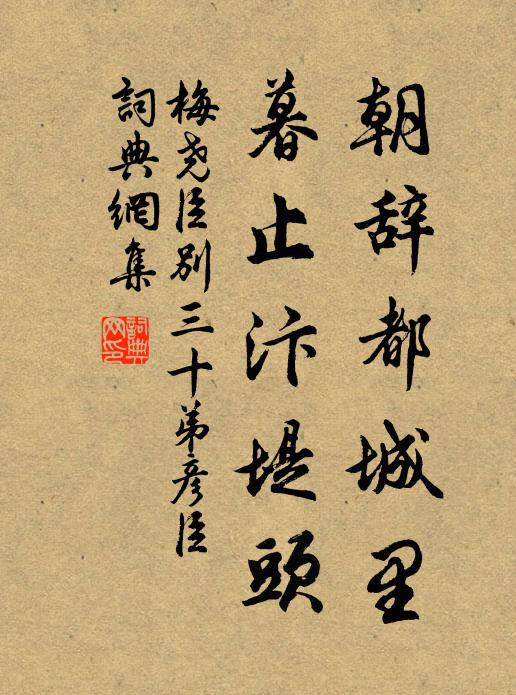 朝辞都城里
暮止汴堤頭
梅尧臣別三十弟彦臣
詞典網集
詞典网印